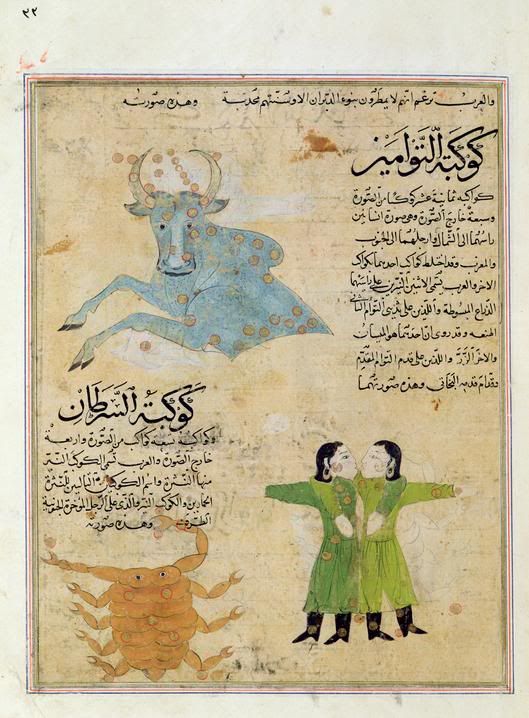 ٣٢
والعرب تزعم انهم لا يمطرون بنوء الدبران الا وسنتهم مجدبة وهذه صورته
كوكبة التوامين
كواكبه ثمانية عشر كوكبا من الصورة
وسبعة خارج الصورة وهي صورة انسانين
راسهما الى الشمال وارجلهما الى الجنوب
والمغرب وقد اختلط كواكب احدهما بكواكب
الاخر والعرب تسمي الاثنين النيرين على راسهما
الذراع المبسوطة واللذين على ثديي التوام الثاني
الهنعة وقد روي ان احدهما هو الميسان
والاخر الزر واللذين على قدم التوام المقدم
وقدام قدمه البخاتي وهذه صورتهما
كوكبة السرطان
كواكبه تسعة كواكب من الصورة واربعة
خارج الصورة والعرب تسمي الكوكب النير
منها النثرة واسم الكوكبين التاليين للنثرة
الحمارين والكوكب النير والذي على الرجل المؤخرة الجنوبية
الطرف وهذه صورته